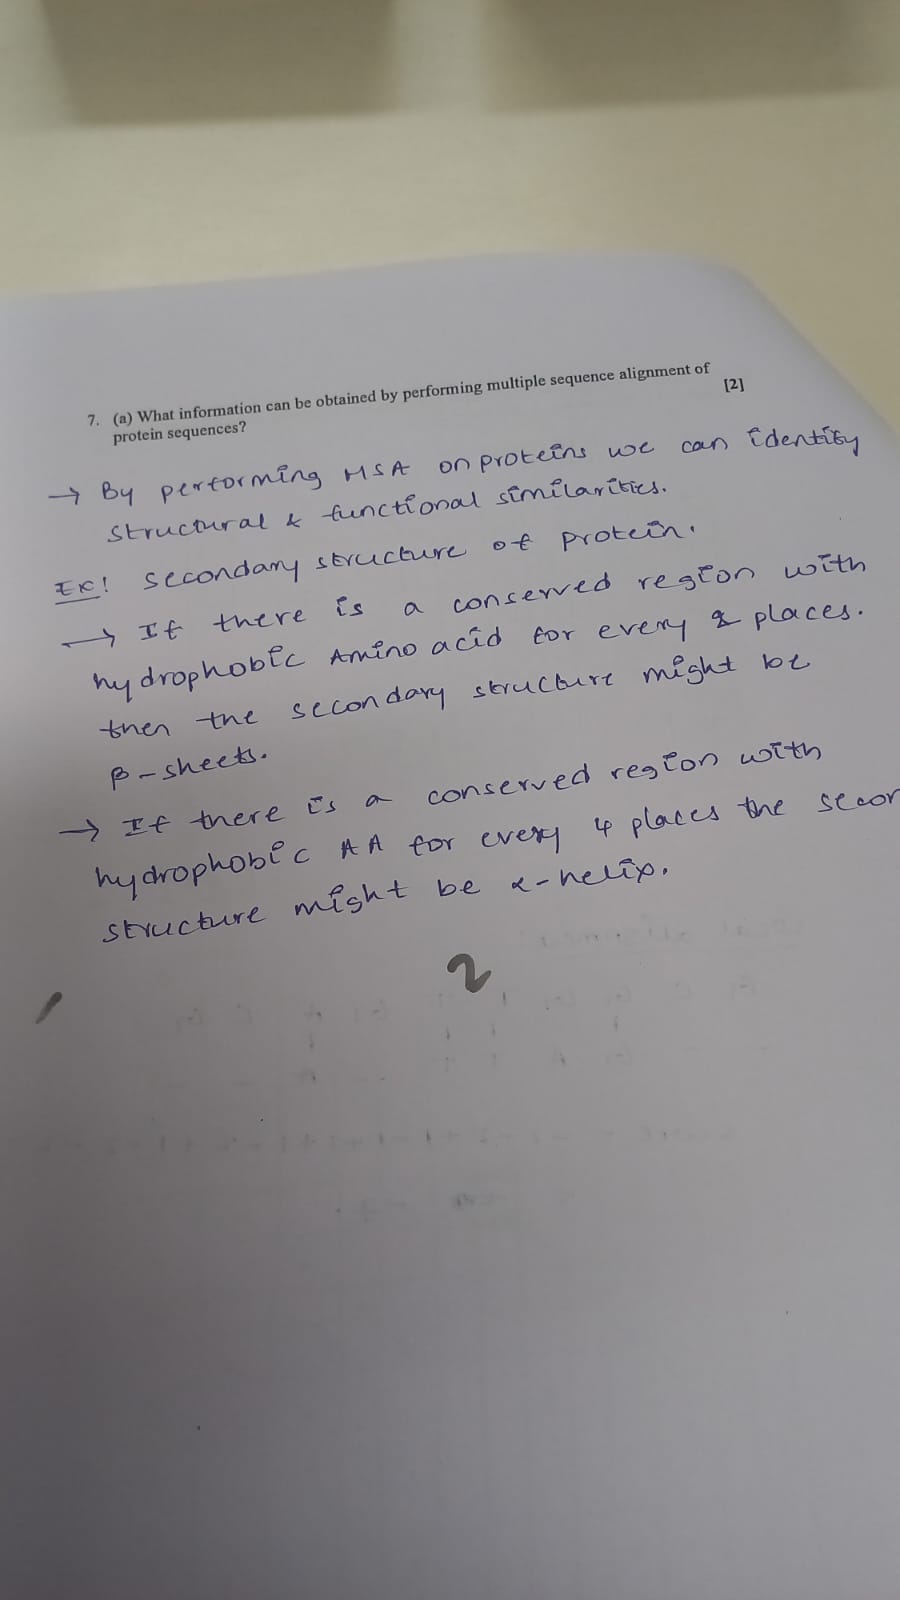 7. (a) What information can be obtained by performing multiple sequence alignment of
protein sequences? [2]
→ By performing MSA on proteins we can identify
structural & functional similarities.
Ex: Secondary structure of protein.
→ If there is a conserved region with
hydrophobic Amino acid for every 2 places.
then the secondary structure might be
β-sheets.
→ If there is a conserved region with
hydrophobic AA for every 4 places the secon
structure might be α-helix.
2